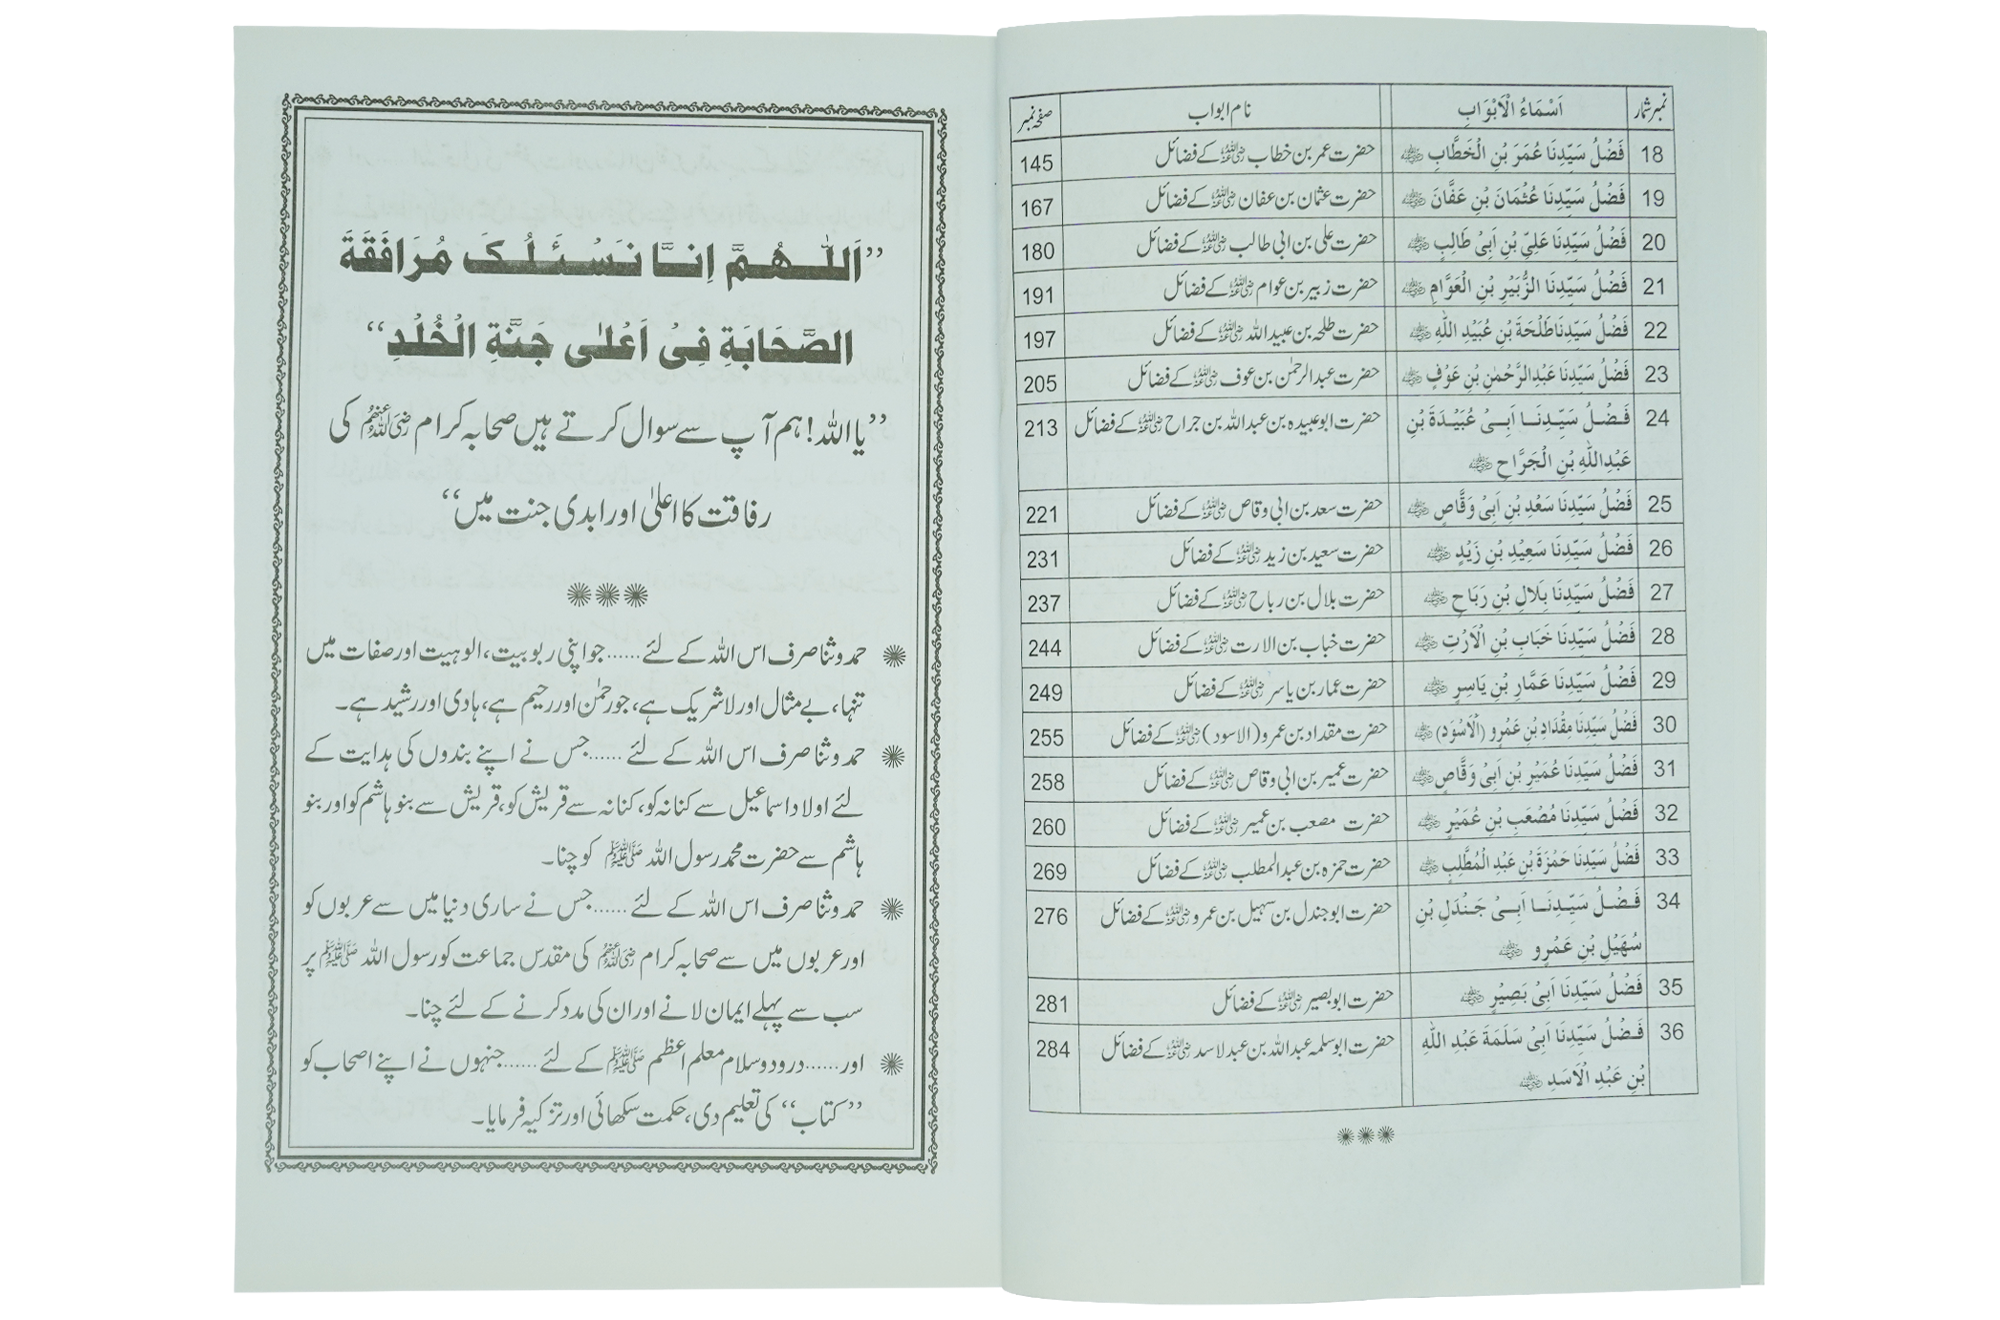 نمبر شمار اَسْمَاءُ الْاَبْوَابِ نام ابواب صفحہ نمبر
18 فَضْلُ سَیِّدِنَا عُمَرَ بْنِ الْخَطَّابِ ؓ حضرت عمر بن خطاب ؓ کے فضائل 145
19 فَضْلُ سَیِّدِنَا عُثْمَانَ بْنِ عَفَّانَ ؓ حضرت عثمان بن عفان ؓ کے فضائل 167
20 فَضْلُ سَیِّدِنَا عَلِیِّ بْنِ اَبِیْ طَالِبٍ ؓ حضرت علی بن ابی طالب ؓ کے فضائل 180
21 فَضْلُ سَیِّدِنَا الزُّبَیْرِ بْنِ الْعَوَّامِ ؓ حضرت زبیر بن عوام ؓ کے فضائل 191
22 فَضْلُ سَیِّدِنَا طَلْحَةَ بْنِ عُبَیْدِ اللّٰهِ ؓ حضرت طلحہ بن عبید اللہ ؓ کے فضائل 197
23 فَضْلُ سَیِّدِنَا عَبْدِالرَّحْمٰنِ بْنِ عَوْفٍ ؓ حضرت عبدالرحمٰن بن عوف ؓ کے فضائل 205
24 فَضْلُ سَیِّدِنَا اَبِیْ عُبَیْدَةَ بْنِ حضرت ابوعبیدہ بن عبداللہ بن جراح ؓ کے فضائل 213
عَبْدِاللّٰهِ بْنِ الْجَرَّاحِ ؓ
25 فَضْلُ سَیِّدِنَا سَعْدِ بْنِ اَبِیْ وَقَّاصٍ ؓ حضرت سعد بن ابی وقاص ؓ کے فضائل 221
26 فَضْلُ سَیِّدِنَا سَعِیْدِ بْنِ زَیْدٍ ؓ حضرت سعید بن زید ؓ کے فضائل 231
27 فَضْلُ سَیِّدِنَا بِلَالِ بْنِ رَبَاحٍ ؓ حضرت بلال بن رباح ؓ کے فضائل 237
28 فَضْلُ سَیِّدِنَا خَبَابِ بْنِ الْاَرْتِ ؓ حضرت خباب بن الارت ؓ کے فضائل 244
29 فَضْلُ سَیِّدِنَا عَمَّارِ بْنِ یَاسِرٍ ؓ حضرت عمار بن یاسر ؓ کے فضائل 249
30 فَضْلُ سَیِّدِنَا مِقْدَادِ بْنِ عَمْرِو (اَلْاَسْوَدِ) ؓ حضرت مقداد بن عمرو (الاسود) ؓ کے فضائل 255
31 فَضْلُ سَیِّدِنَا عُمَیْرِ بْنِ اَبِیْ وَقَّاصٍ ؓ حضرت عمیر بن ابی وقاص ؓ کے فضائل 258
32 فَضْلُ سَیِّدِنَا مُصْعَبِ بْنِ عُمَیْرٍ ؓ حضرت مصعب بن عمیر ؓ کے فضائل 260
33 فَضْلُ سَیِّدِنَا حَمْزَةَ بْنِ عَبْدِ الْمُطَّلِبِ ؓ حضرت حمزہ بن عبدالمطلب ؓ کے فضائل 269
34 فَضْلُ سَیِّدِنَا اَبِیْ جَنْدَلِ بْنِ حضرت ابوجندل بن سہیل بن عمرو ؓ کے فضائل 276
سُهَیْلِ بْنِ عَمْرٍو ؓ
35 فَضْلُ سَیِّدِنَا اَبِیْ بَصِیْرٍ ؓ حضرت ابوبصیر ؓ کے فضائل 281
36 فَضْلُ سَیِّدِنَا اَبِیْ سَلَمَةَ عَبْدِ اللّٰهِ حضرت ابوسلمہ عبداللہ بن عبدلاسد ؓ کے فضائل 284
بْنِ عَبْدِ الْاَسَدِ ؓ
”اَللّٰهُمَّ اِنَّا نَسْئَلُکَ مُرَافَقَةَ
الصَّحَابَةِ فِیْ اَعْلٰی جَنَّةِ الْخُلْدِ“
”یا اللہ! ہم آپ سے سوال کرتے ہیں صحابہ کرام ؓ کی
رفاقت کا اعلیٰ اور ابدی جنت میں“
حمد و ثنا صرف اس اللہ کے لئے ...... جو اپنی ربوبیت، الوہیت اور صفات میں
تنہا، بے مثال اور لاشریک ہے، جو رحمٰن اور رحیم ہے، ہادی اور رشید ہے۔
حمد و ثنا صرف اس اللہ کے لئے ...... جس نے اپنے بندوں کی ہدایت کے
لئے اولاد اسماعیل سے کنانہ کو، کنانہ سے قریش کو، قریش سے بنو ہاشم کو اور بنو
ہاشم سے حضرت محمد رسول اللہ ﷺ کو چنا۔
حمد و ثنا صرف اس اللہ کے لئے ...... جس نے ساری دنیا میں سے عربوں کو
اور عربوں میں سے صحابہ کرام ؓ کی مقدس جماعت کو رسول اللہ ﷺ پر
سب سے پہلے ایمان لانے اور ان کی مدد کرنے کے لئے چنا۔
اور ...... درود و سلام معلم اعظم ﷺ کے لئے ...... جنہوں نے اپنے اصحاب کو
”کتاب“ کی تعلیم دی، حکمت سکھائی اور تزکیہ فرمایا۔